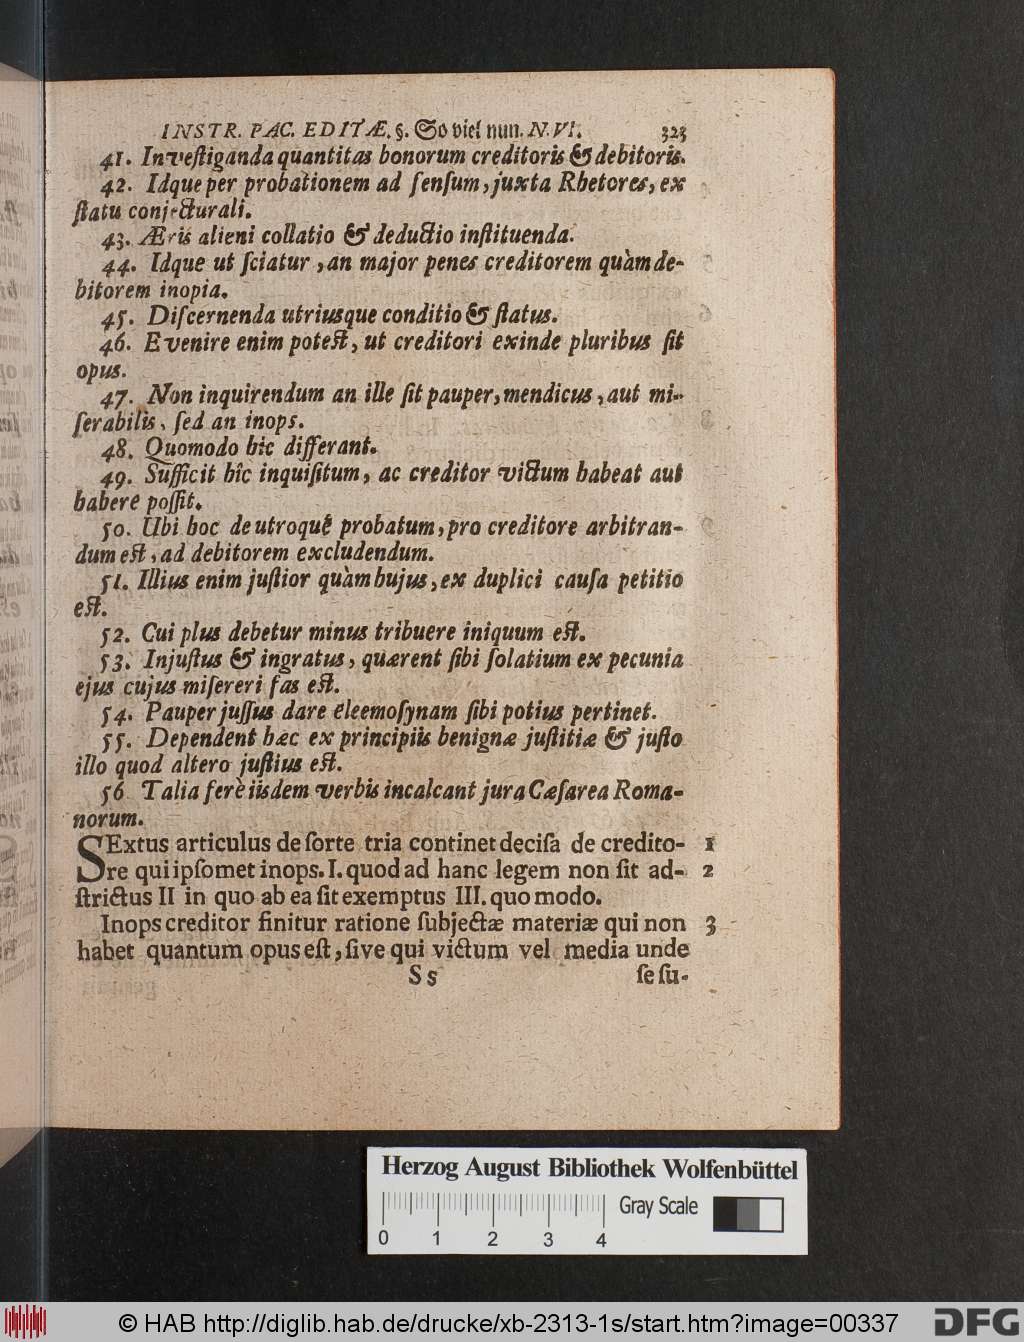 INSTR. PAC. EDITÆ. §. So viel nun. N. VI. 323
41. Inveſtiganda quantitas bonorum creditoris & debitoris.
42. Idque per probationem ad ſenſum, juxta Rhetores, ex
ſtatu conjecturali.
43. Æris alieni collatio & deductio inſtituenda.
44. Idque ut ſciatur, an major penes creditorem quàm de-
bitorem inopia.
45. Diſcernenda utriusque conditio & ſtatus.
46. Evenire enim poteſt, ut creditori exinde pluribus ſit
opus.
47. Non inquirendum an ille ſit pauper, mendicus, aut mi-
ſerabilis, ſed an inops.
48. Quomodo hic differant.
49. Sufficit hîc inquiſitum, ac creditor victum habeat aut
habere poſſit.
50. Ubi hoc de utroquê probatum, pro creditore arbitran-
dum eſt, ad debitorem excludendum.
51. Illius enim juſtior quàm hujus, ex duplici cauſa petitio
eſt.
52. Cui plus debetur minus tribuere iniquum eſt.
53. Injuſtus & ingratus, quærent ſibi ſolatium ex pecunia
ejus cujus miſereri fas eſt.
54. Pauper juſſus dare eleemoſynam ſibi potius pertinet.
55. Dependent hæc ex principiis benignæ juſtitiæ & juſto
illo quod altero juſtius eſt.
56 Talia ferè iisdem verbis incalcant jura Cæſarea Roma-
norum.
SExtus articulus de ſorte tria continet deciſa de credito- 1
re qui ipſomet inops. I. quod ad hanc legem non ſit ad- 2
ſtrictus II in quo ab ea ſit exemptus III. quo modo.
Inops creditor finitur ratione ſubjectæ materiæ qui non 3
habet quantum opus eſt, ſive qui victum vel media unde
S s ſe ſu-
Herzog August Bibliothek Wolfenbüttel
Gray Scale
0 1 2 3 4
© HAB http://diglib.hab.de/drucke/xb-2313-1s/start.htm?image=00337
DFG